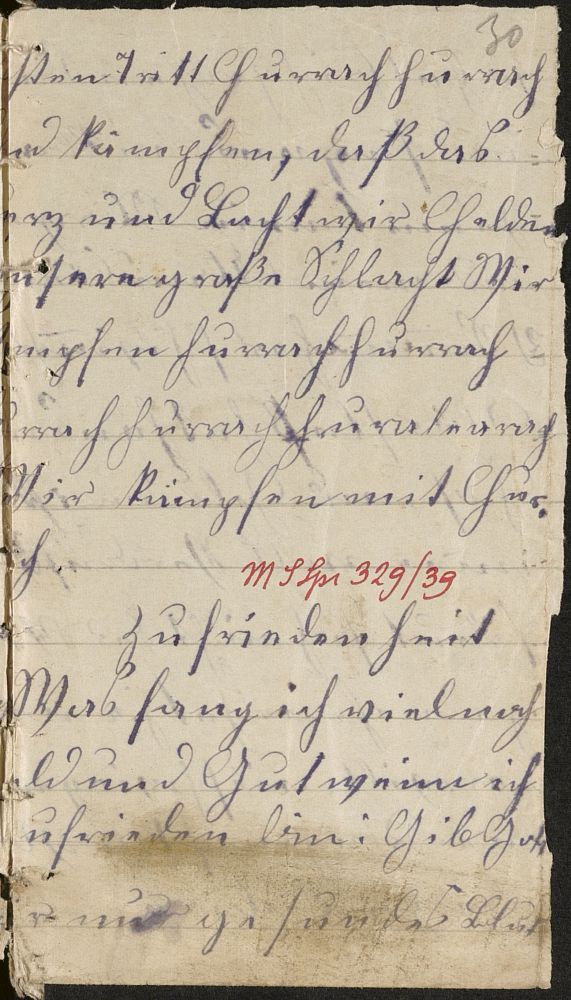 30
sten Tritt Hurrach hurrach
d kämpfen, daß das
erz und Lacht wir Helden
unsere große Schlacht Wir
empfen hurrach hurrach
rrach hurrach huralearach
Wir kämpfen mit Hur,
ch.
M S Lpr 329/39
Zufriedenheit
Was fang ich viel nach
ld und Gut wenn ich
ufrieden bin: Gib Gott
r nur gesundes Blut